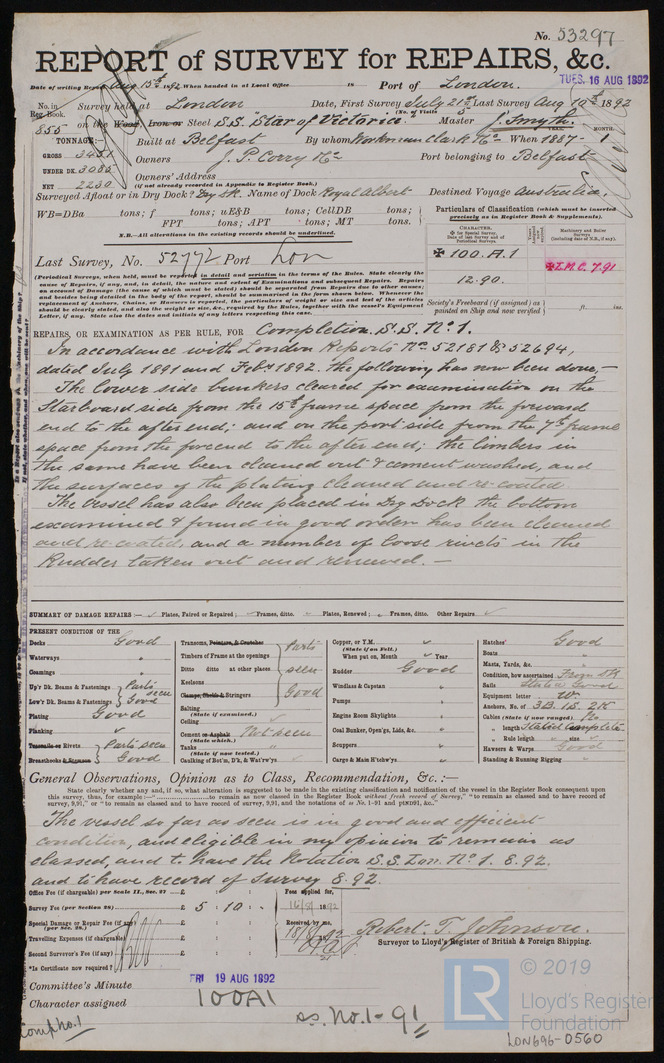 No. 53297
REPORT of SURVEY for REPAIRS, &c.
Date of writing Report Aug 15th 1892 When handed in at Local Office 18 Port of London.
TUES. 16 AUG 1892
No. in Reg. Book. Survey held at London Date, First Survey July 21st Last Survey Aug 10th 1892
(No. of Visits 5)
855 on the Wood Iron or Steel S.S. "Star of Victoria" Master J. Smyth.
TONNAGE:— Built at Belfast By whom Workman Clark & Co When 1887 - 1
YEAR. MONTH.
GROSS 3451 Owners J. P. Corry & Co Port belonging to Belfast
UNDER DK. 3085 Owners' Address
NET 2230 (if not already recorded in Appendix to Register Book.)
Surveyed Afloat or in Dry Dock? Dry Dk. Name of Dock Royal Albert Destined Voyage Australia.
WB=DBa tons; f tons; uE&B tons; CellDB tons;
FPT tons; APT tons; MT tons.
N.B.—All alterations in the existing records should be underlined.
Particulars of Classification (which must be inserted precisely as in Register Book & Supplements).
CHARACTER.
✠ for Special Survey. Date of last Survey and of Periodical Surveys.
Machinery and Boiler Surveys. (including date of N.B., if any).
✠ 100.A.1
12.90.
✠L.M.C. 7.91
Last Survey, No. 52772 Port Lon
(Periodical Surveys, when held, must be reported in detail and seriatim in the terms of the Rules. State clearly the cause of Repairs, if any, and, in detail, the nature and extent of Examinations and subsequent Repairs. Repairs on account of Damage (the cause of which must be stated) should be separated from Repairs due to other causes; and besides being detailed in the body of the report, should be summarised in the form shown below. Whenever the replacement of Anchors, Chains, or Hawsers is reported, the particulars of weight or size and test of the articles should be clearly stated, and also the weight or size, &c., required by the Rules, together with the vessel's Equipment Letter, if any. State also the dates and initials of any letters respecting this case.
Society's Freeboard (if assigned) as painted on Ship and now verified ft. ins.
REPAIRS, OR EXAMINATION AS PER RULE, FOR Completion S.S. No 1.
In accordance with London Reports Nos. 52181 & 52694,
dated July 1891 and Feby 1892. the following has now been done,—
The lower side bunkers cleared for examination on the
Starboard side from the 15th frame space from the forward
end to the after end; and on the port side from the 7th frame
space from the fore end to the after end; the limbers in
the same have been cleaned out & cement washed, and
the surfaces of the plating cleaned and re-coated.
The Vessel has also been placed in Dry Dock the bottom
examined & found in good order has been cleaned
and re-coated, and a number of loose rivets in the
Rudder taken out and renewed.—
SUMMARY OF DAMAGE REPAIRS — Plates, Faired or Repaired; Frames, ditto. Plates, Renewed; Frames, ditto. Other Repairs.
PRESENT CONDITION OF THE
Decks Good
Waterways "
Coamings "
Up'r Dk. Beams & Fastenings Parts seen
Low'r Dk. Beams & Fastenings Good
Plating Good
Planking
Treenails or Rivets Parts seen
Breasthooks & Stemson Good
Transoms, Pointers, & Crutches Parts
Timbers of Frame at the openings
Ditto ditto at other places seen
Keelsons
Clamps, Shelfs & Stringers Good
Salting
(State if examined.)
Ceiling
Cement or Asphalt Not seen
(State which.)
Tanks "
(State if now tested.)
Caulking of Bot'm, D'k, & Wat'rw'ys
Copper, or Y.M.
(State if on Felt.)
When put on, Month Year
Rudder Good
Windlass & Capstan "
Pumps
Engine Room Skylights
Coal Bunker, Open'gs, Lids, &c.
Scuppers
Cargo & Main H'tchw'ys
Hatches Good
Boats "
Masts, Yards, &c. "
Condition, how ascertained From Dk
Sails Stated Good
Equipment letter W.
Anchors, No. of 3B. 1S. 2K
Cables (State if now ranged) No
" length Stated complete
" Rule length size
Hawsers & Warps Good
Standing & Running Rigging "
General Observations, Opinion as to Class, Recommendation, &c. :—
State clearly whether any and, if so, what alteration is suggested to be made in the existing classification and notification of the vessel in the Register Book consequent upon this survey, thus, for example:—" to remain as now classed in the Register Book without fresh record of Survey," "to remain as classed and to have record of survey, 9,91," or "to remain as classed and to have record of survey, 9,91, and the notations of ss No. 1-91 and ptND91, &c."
The vessel so far as seen is in good and efficient
condition, and eligible in my opinion to remain as
classed, and to have the Notation S.S. Lon. No 1. 8.92.
and to have record of Survey 8.92.
Office Fee (if chargeable) per Scale II., Sec. 27 £ : :
Survey Fee (per Section 28) £ 5 : 10 : -
Special Damage or Repair Fee (if any) (per Sec. 28.) £ : :
Travelling Expenses (if chargeable) £ : :
Second Surveyor's Fee (if any) £ : :
*Is Certificate now required?
Fees applied for,
16/8/1892
Received by me,
18/8/1892
Robert. T. Johnson.
Surveyor to Lloyd's Register of British & Foreign Shipping.
Committee's Minute
FRI 19 AUG 1892
Character assigned 100A1
ss. No. 1-91
© 2019
LR
Lloyd's Register
Foundation
LON696-0560